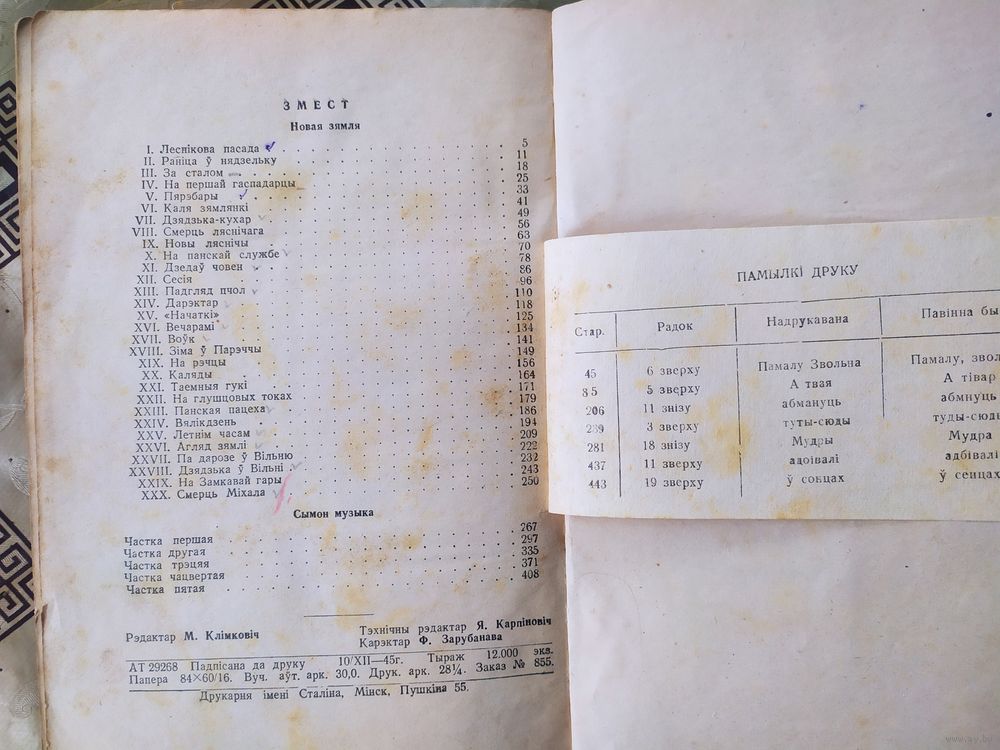 ЗМЕСТ
Новая зямля
I. Леснікова пасада 5
II. Раніца ў нядзельку 11
III. За сталом 18
IV. На першай гаспадарцы 25
V. Пярэбары 33
VI. Каля зямлянкі 41
VII. Дзядзька-кухар 49
VIII. Смерць ляснічага 56
IX. Новы ляснічы 63
X. На панскай службе 70
XI. Дзедаў човен 78
XII. Сесія 86
XIII. Падгляд пчол 96
XIV. Дарэктар 110
XV. «Начаткі» 118
XVI. Вечарамі 125
XVII. Воўк 134
XVIII. Зіма ў Парэччы 141
XIX. На рэчцы 149
XX. Каляды 156
XXI. Таемныя гукі 164
XXII. На глушцовых токах 171
XXIII. Панская пацеха 179
XXIV. Вялікдзень 186
XXV. Летнім часам 194
XXVI. Агляд зямлі 209
XXVII. Па дарозе ў Вільню 222
XXVIII. Дзядзька ў Вільні 232
XXIX. На Замкавай гары 243
XXX. Смерць Міхала 250
Сымон музыка
Частка першая 267
Частка другая 297
Частка трэцяя 335
Частка чацвертая 371
Частка пятая 408
Рэдактар М. Клімковіч
Тэхнічны рэдактар Я. Карпіновіч
Карэктар Ф. Зарубанава
АТ 29268 Падпісана да друку 10/XII—45г. Тыраж 12.000 экз.
Папера 84×60/16. Вуч. аўт. арк. 30,0. Друк. арк. 28¼. Заказ № 855.
Друкарня імені Сталіна, Мінск, Пушкіна 55.
ПАМЫЛКІ ДРУКУ
Стар. Радок Надрукавана Павінна бы
45 6 зверху Памалу Звольна Памалу, звол
85 5 зверху А твая А тівар
206 11 знізу абмануць абмнуць
239 3 зверху туты-сюды туды-сюды
281 18 знізу Мудры Мудра
437 11 зверху адоівалі адбівалі
443 19 зверху ў сонцах ў сенцах
www.ay.by